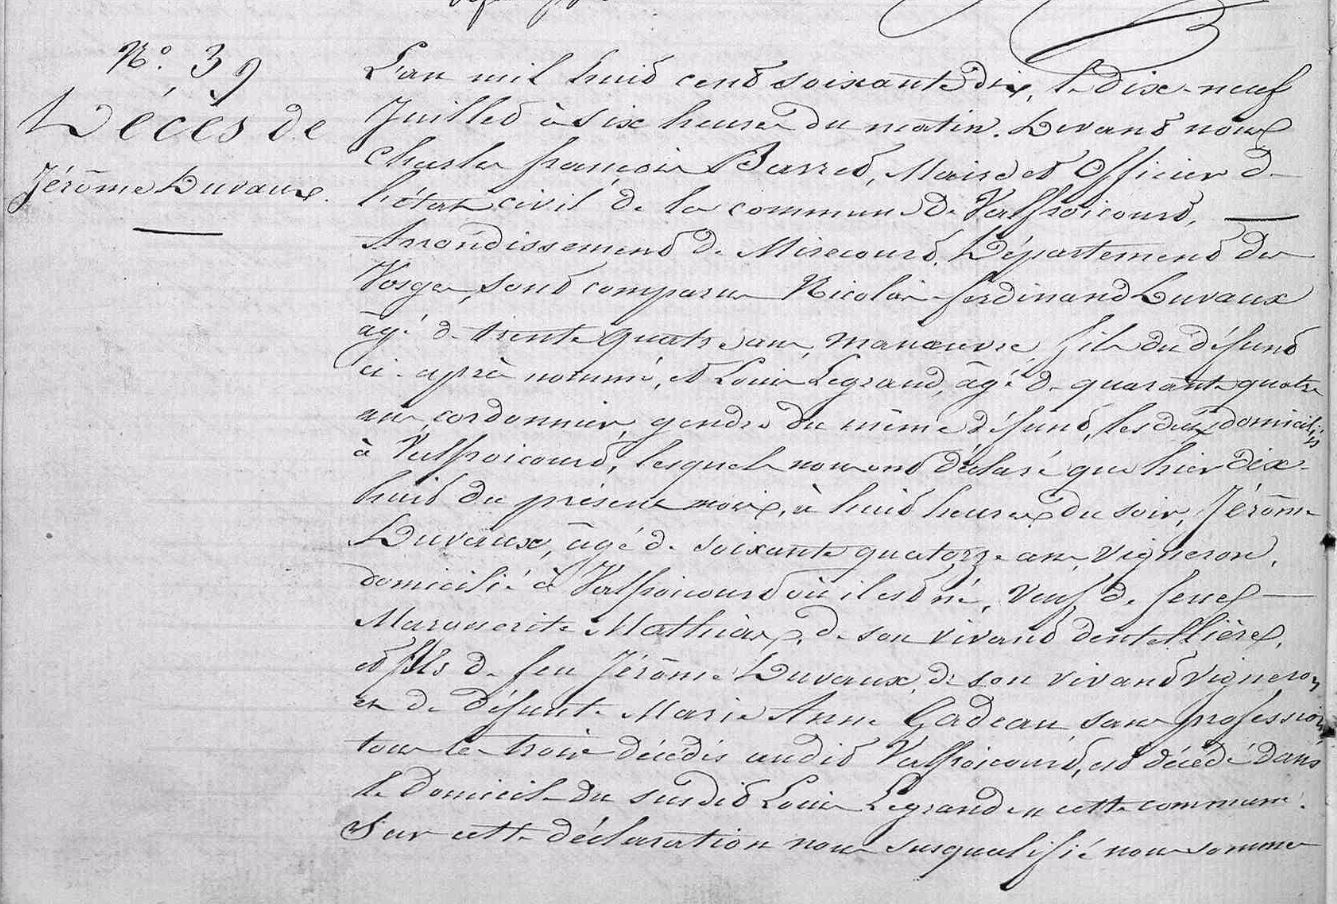 N.º 39
Décès de
Jérôme Duvaux.
L'an mil huit cent soixante dix, le dix-neuf
Juillet à six heures du matin. Devant nous
Charles françois Barret, Maire et Officier de
l'état civil de la commune de Valfroicourt,
Arrondissement de Mirecourt, Département des
Vosges, sont comparus Nicolas ferdinand Duvaux
âgé de trente quatre ans, manœuvre, fils du défunt
ci-après nommé, et Louis Legrand, âgé de quarante quatre
ans, cordonnier, gendre du même défunt, les deux domiciliés
à Valfroicourt, lesquels nous ont déclaré que hier dix-
huit du présent mois, à huit heures du soir, Jérôme
Duvaux, âgé de soixante quatorze ans, vigneron,
domicilié à Valfroicourt où il est né, veuf de feue
Marguerite Mathieu, de son vivant dentellière,
et fils de feu Jérôme Duvaux, de son vivant vigneron,
et de défunte Marie Anne Gadeau sans profession
tous les trois décédés audit Valfroicourt, est décédé dans
le domicile du susdit Louis Legrand en cette commune.
Sur cette déclaration nous susqualifié nous sommes